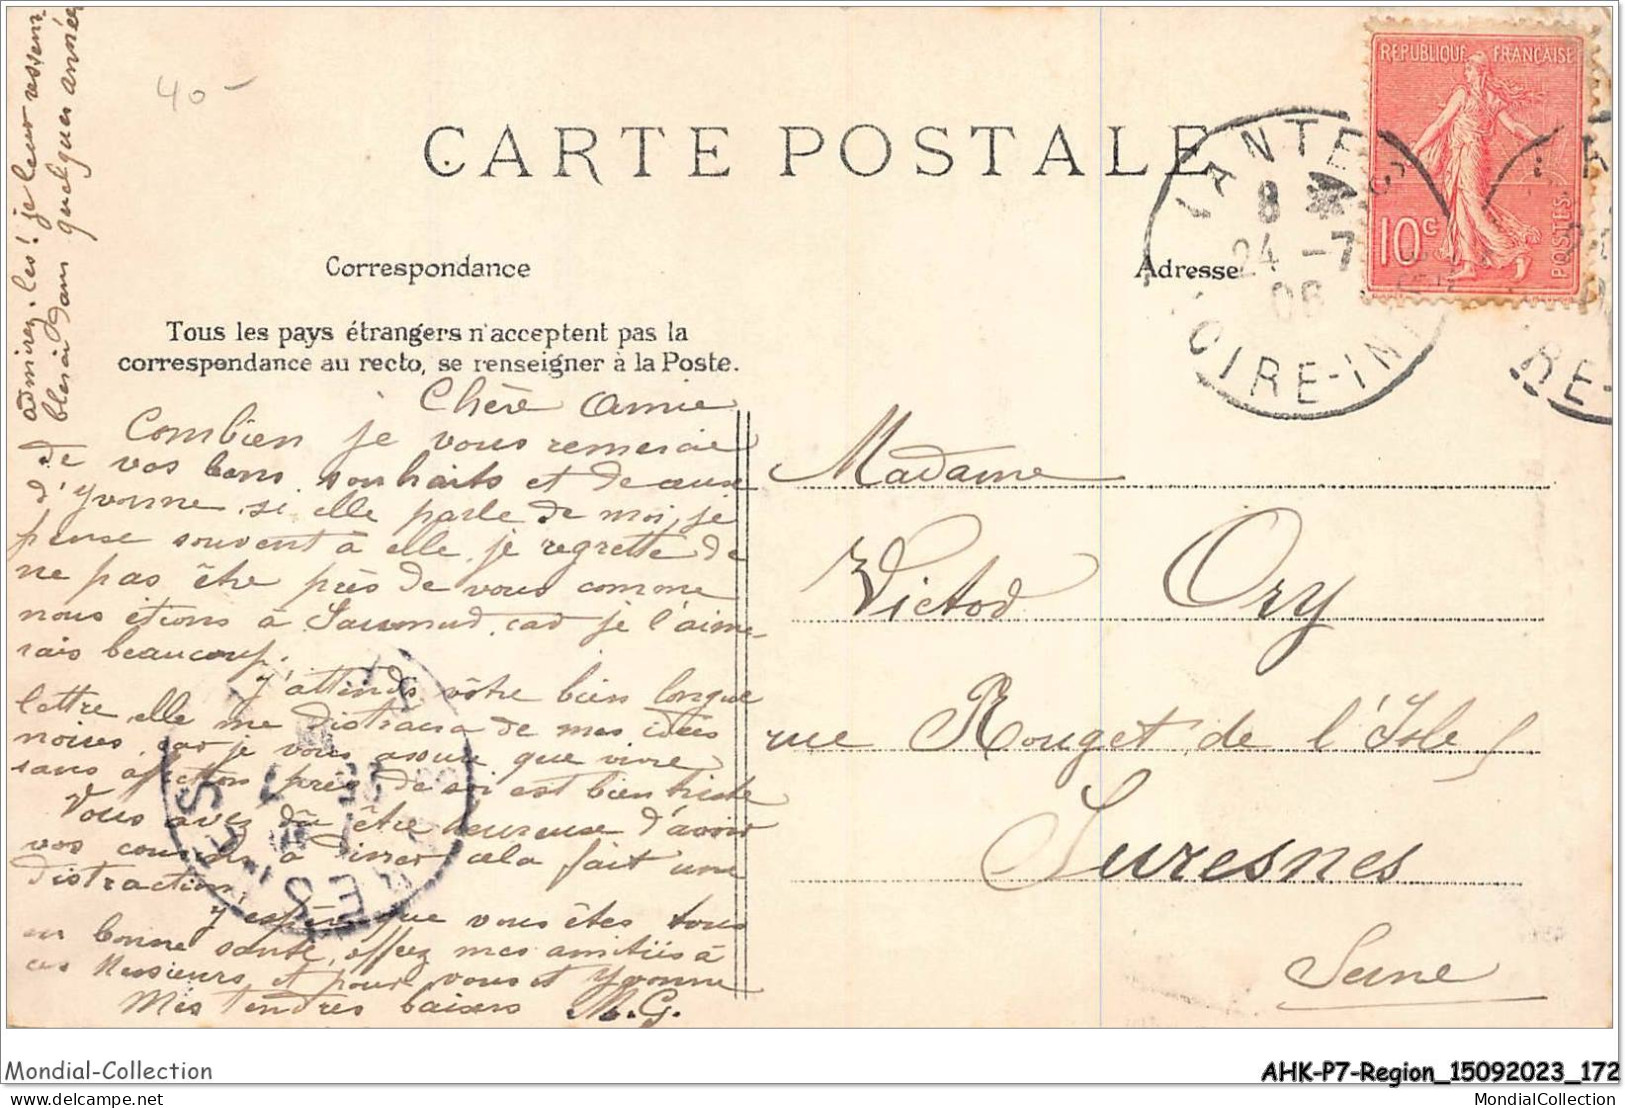 admirez-les! je leur ressem
blerai dans quelques années
40-
CARTE POSTALE
REPUBLIQUE FRANÇAISE
10c
POSTES
NANTES
8
24 -7
06
LOIRE-INF
RE-
Correspondance
Adresse
Tous les pays étrangers n'acceptent pas la
correspondance au recto, se renseigner à la Poste.
Chère Amie
Combien je vous remercie
de vos bons souhaits et de ceux
d'Yvonne. si elle parle de moi, je
pense souvent à elle, je regrette de
ne pas être près de vous comme
nous étions à Saumur, car je l'aime-
rais beaucoup.
J'attends vôtre bien longue
lettre, elle me distraira de mes idées
noires, car je vous assure que vivre
sans affection près de soi est bien triste
Vous avez dû être heureuse d'avoir
vos cousins à dîner cela fait une
distraction.
J'espère que vous êtes tous
en bonne santé, offrez mes amitiés à
ces Messieurs, et pour vous et Yvonne
Mes tendres baisers M.G.
SURESNES
Madame
Victor Ory
rue Rouget de l'Isle
Suresnes
Seine
Mondial-Collection
AHK-P7-Region_15092023_172
delcampe.net
MondialCollection